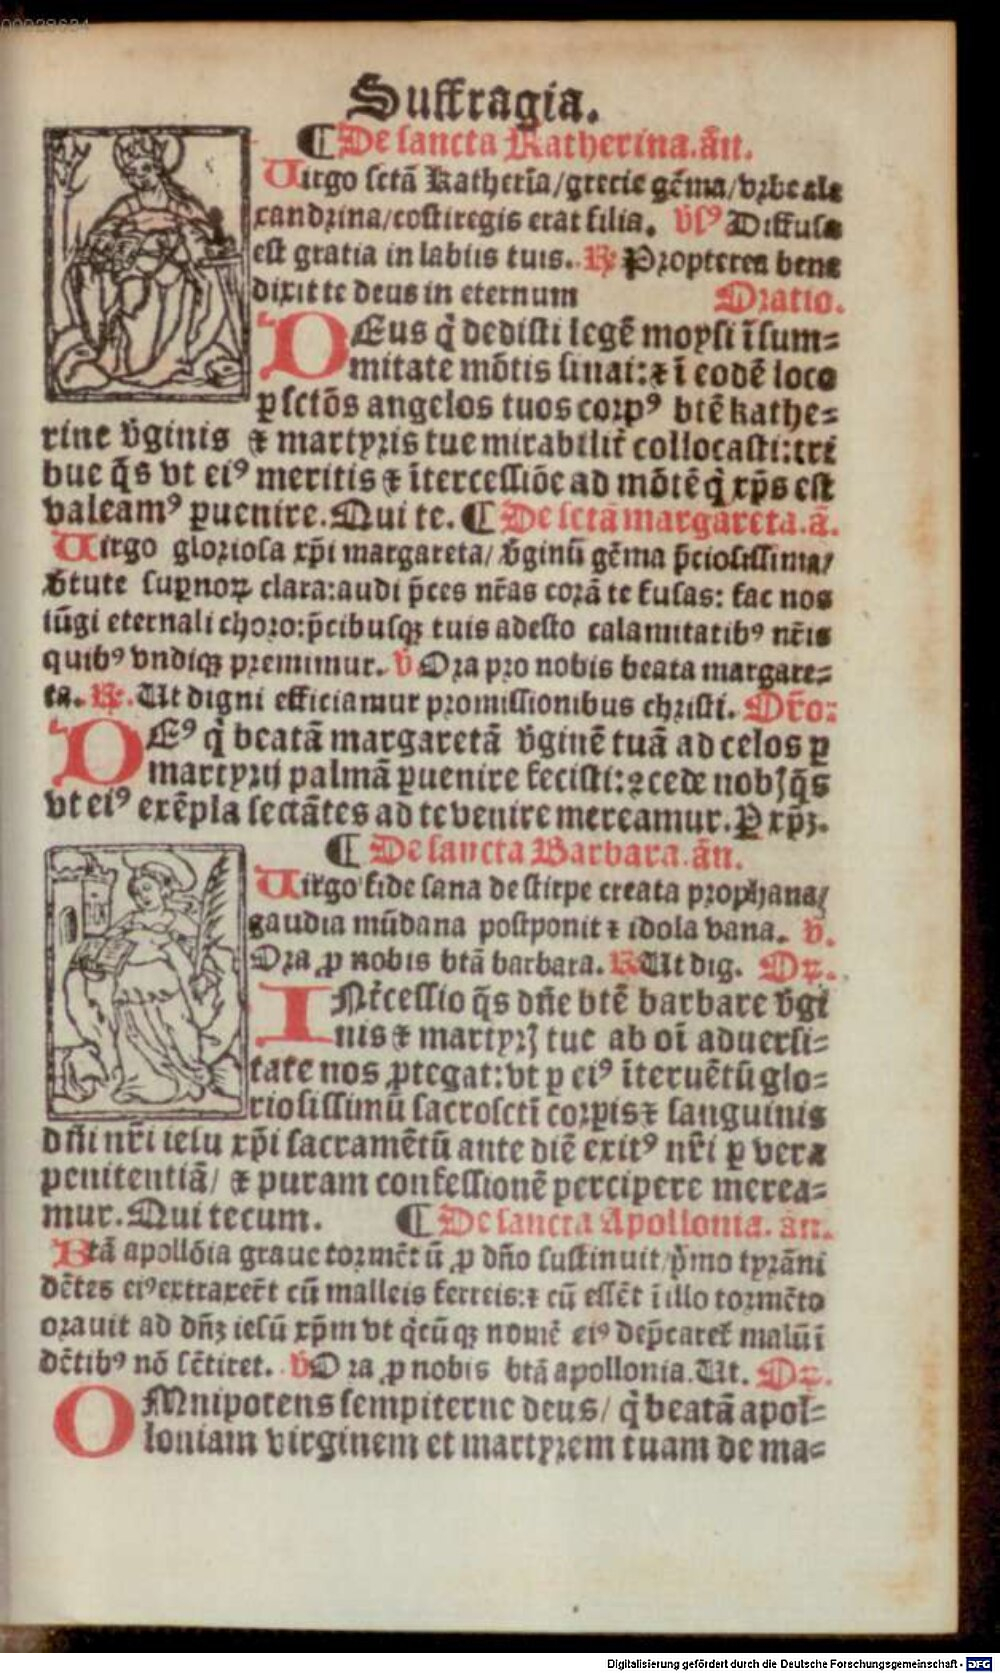 00028634
Suffragia.
¶ De sancta Katherina. añ.
Uirgo sctã Katherĩa/grecie gẽma/vrbe ale
xandrina/costiregis erat filia. v̄sꝰ Diffusa
est gratia in labiis tuis. ℟ Propterea bene
dixit te deus in eternum Oratio.
DEus q̃ dedisti legẽ moysi ĩ sum=
mitate mõtis sinai: ⁊ ĩ eodẽ loco
ꝑ sctõs angelos tuos corpꝰ btẽ kathe=
rine v̄ginis ⁊ martyris tue mirabilit̃ collocasti: tri
bue q̃s vt eiꝰ meritis ⁊ ĩtercessiõe ad mõtẽ q̃ xp̃s est
valeamꝰ ꝑuenire. Qui te. ¶ De sctã margareta. ã.
Uirgo gloriosa xp̃i margareta/ v̄ginũ gẽma p̃ciosissima/
v̄tute suꝑnoꝝ clara: audi p̃ces nr̃as corã te fusas: fac nos
iũgi eternali choro: p̃cibusqꝫ tuis adesto calamitatibꝰ nr̃is
quibꝰ vndiqꝫ premimur. v̄ Ora pro nobis beata margare=
ta. ℟. Ut digni efficiamur promissionibus christi. Or̃o:
DEꝰ q̃ beatã margaretã v̄ginẽ tuã ad celos ꝑ
martyrij palmã ꝑuenire fecisti: ꝯcede nobꝭ q̃s
vt eiꝰ exẽpla sectãtes ad te venire mereamur. P xp̃ꝫ.
¶ De sancta Barbara. añ.
Uirgo fide sana de stirpe creata prophana/
gaudia mũdana postponit ⁊ idola vana. v̄.
Ora ꝓ nobis btã barbara. ℟ Ut dig. Oꝝ.
INt̃cessio q̃s dñe btẽ barbare v̄gi
nis ⁊ martyrꝭ tue ab oĩ aduersi=
tate nos ꝓtegat: vt ꝑ eiꝰ ĩteruẽtũ glo=
riosissimũ sacrosctĩ corꝑis ⁊ sanguinis
dñi nr̃i iesu xp̃i sacramẽtũ ante diẽ exitꝰ nr̃i ꝑ verã
penitentiã/ ⁊ puram confessionẽ percipere merea=
mur. Qui tecum. ¶ De sancta Apollonia. añ.
Btã apollõia graue tormẽtũ ꝓ dño sustinuit/ p̃mo tyrãni
dẽtes eiꝰ extraxer̃t cũ malleis ferreis: ⁊ cũ essẽt ĩ illo tormẽto
orauit ad dñꝫ iesũ xp̃m vt q̃cũqꝫ nomẽ eiꝰ dep̃caret̃ malũ ĩ
dẽtibꝰ nõ sẽtiret. v̄ Ora ꝓ nobis btã apollonia. Ut. Oꝝ.
OMnipotens sempiterne deus/ q̃ beatã apol=
loniam virginem et martyrem tuam de ma=
Digitalisierung gefördert durch die Deutsche Forschungsgemeinschaft - DFG